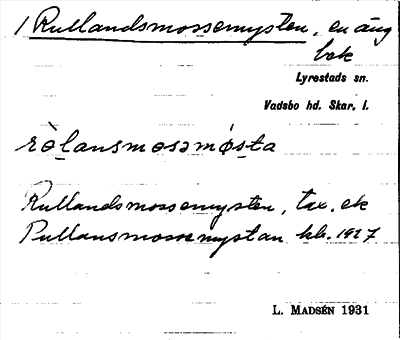 1 Rullandsmossemysten, en äng
bek
Lyrestads sn.
Vadsbo hd. Skar. l.
rò̱lansmosəmø̱sta
Rullandsmossemysten, tax. ek
Pullansmosse mystan kb. 1927
L. MADSÉN 1931